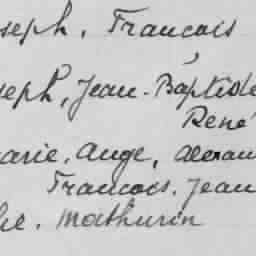 seph, Francois
seph, Jean-Baptiste
René
arie, Ange, Alexan
Francois, Jean
lie, Mathurin